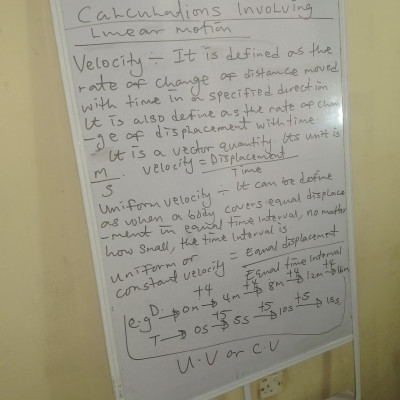 Calculations Involving
Linear motion
Velocity ÷ It is defined as the
rate of change of distance moved
with time in a specified direction
It is also define as the rate of chan
-ge of displacement with time
It is a vector quantity Its unit is
m/s. Velocity = Displacement / Time
Uniform velocity ÷ It can be define
as when a body covers equal displace
-ment in equal time interval, no matter
how small, the time interval is
uniform or
constant velocity = Equal displacement / Equal time interval
+4 +4 +4 +4
e.g D. → 0m → 4m → 8m → 12m → 16m
+5 +5 +5
T → 0s → 5s → 10s → 15s
U.V or C.V